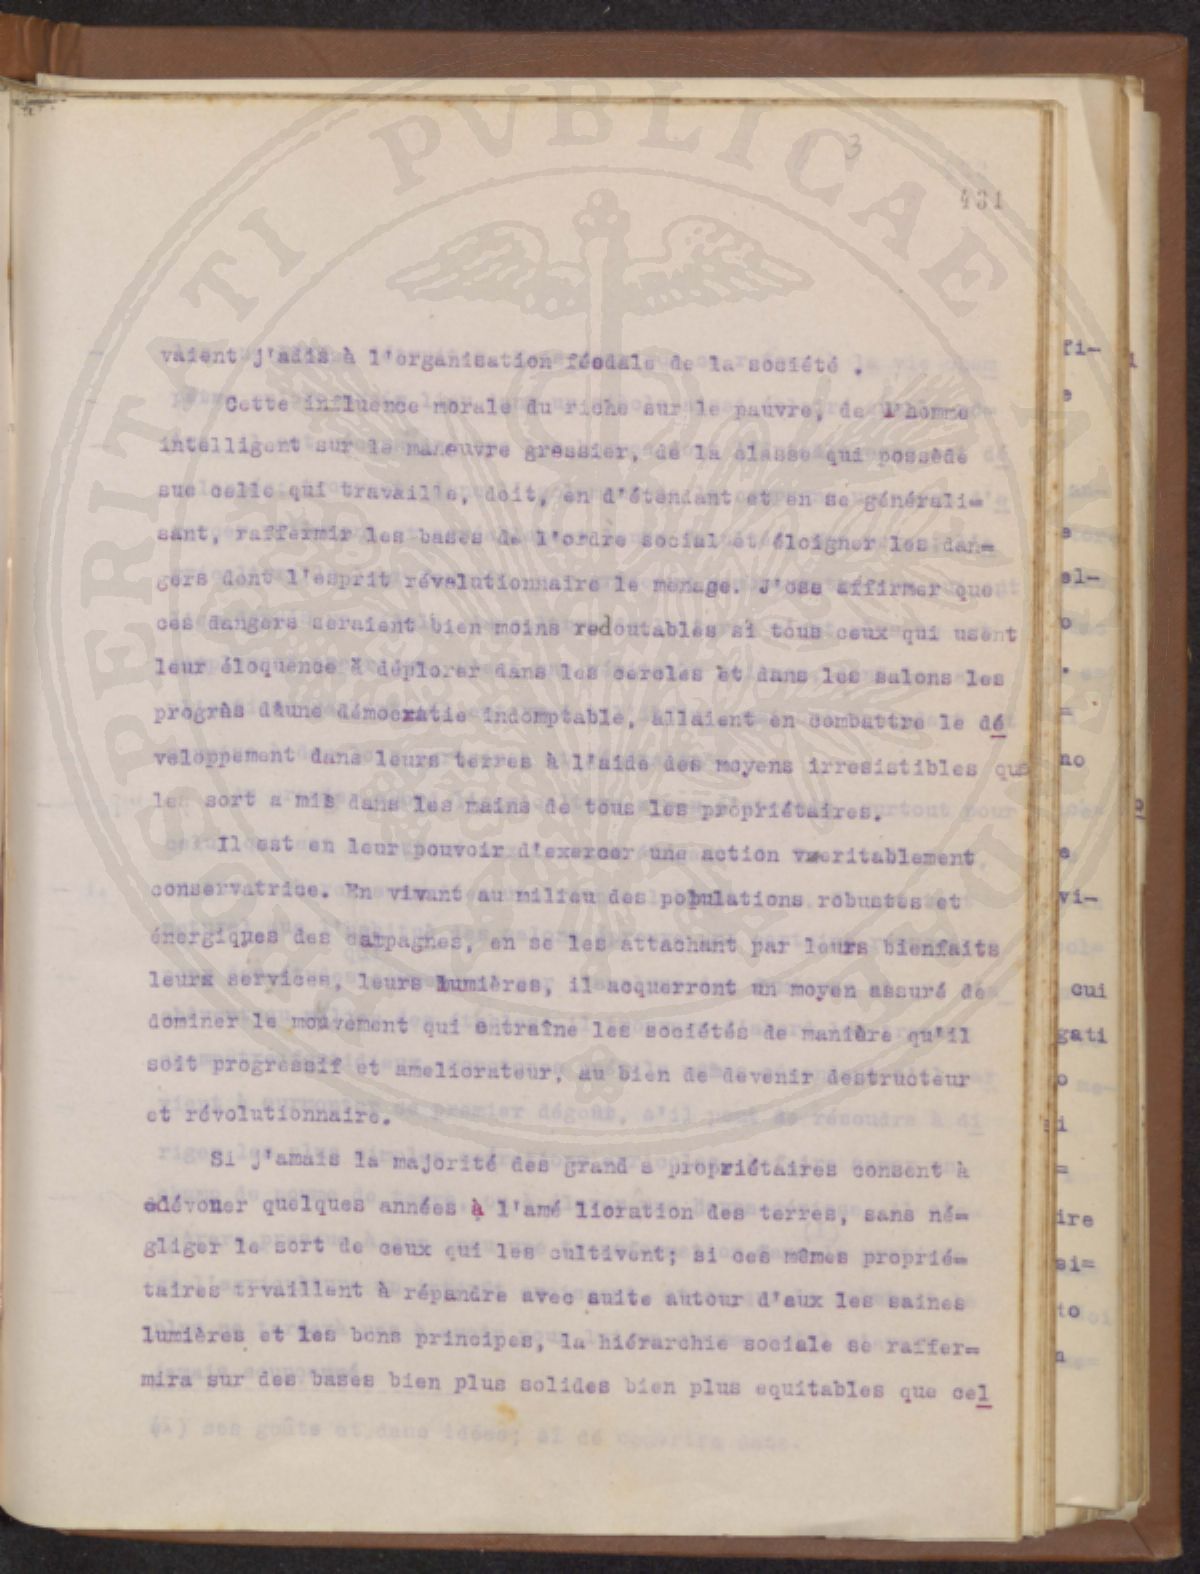 3
431
vaient j'adis à l'organisation féodale de la société .
Cette influence morale du riche sur le pauvre, de l'homme
intelligent sur le manœuvre gressier, de la classe qui possède
sue celle qui travaille, doit, en d'étendant et en se générali=
sant, raffermir les bases de l'ordre social et éloigner les dan=
gers dont l'esprit révolutionnaire le menage. J'ose affirmer que
ces dangers seraient bien moins redoutables si tous ceux qui usent
leur éloquence à déplorer dans les cercles et dans les salons les
progrès d'une démocratie indomptable, allaient en combattre le dé
veloppement dans leurs terres à l'aide des moyens irresistibles que
le sort a mis dans les mains de tous les propriétaires.
Il est en leur pouvoir d'exercer une action veritablement
conservatrice. En vivant au milieu des populations robustes et
énergiques des campagnes, en se les attachant par leurs bienfaits
leurs services, leurs lumières, il acquerront un moyen assuré de
dominer le mouvement qui entraîne les sociétés de manière qu'il
soit progressif et ameliorateur, au bien de devenir destructeur
et révolutionnaire.
Si j'amais la majorité des grand s propriétaires consent à
dévouer quelques années à l'amé lioration des terres, sans né=
gliger le sort de ceux qui les cultivent; si ces mêmes proprié=
taires trvaillent à répandre avec suite autour d'eux les saines
lumières et les bons principes, la hiérarchie sociale se raffer=
mira sur des bases bien plus solides bien plus equitables que cel